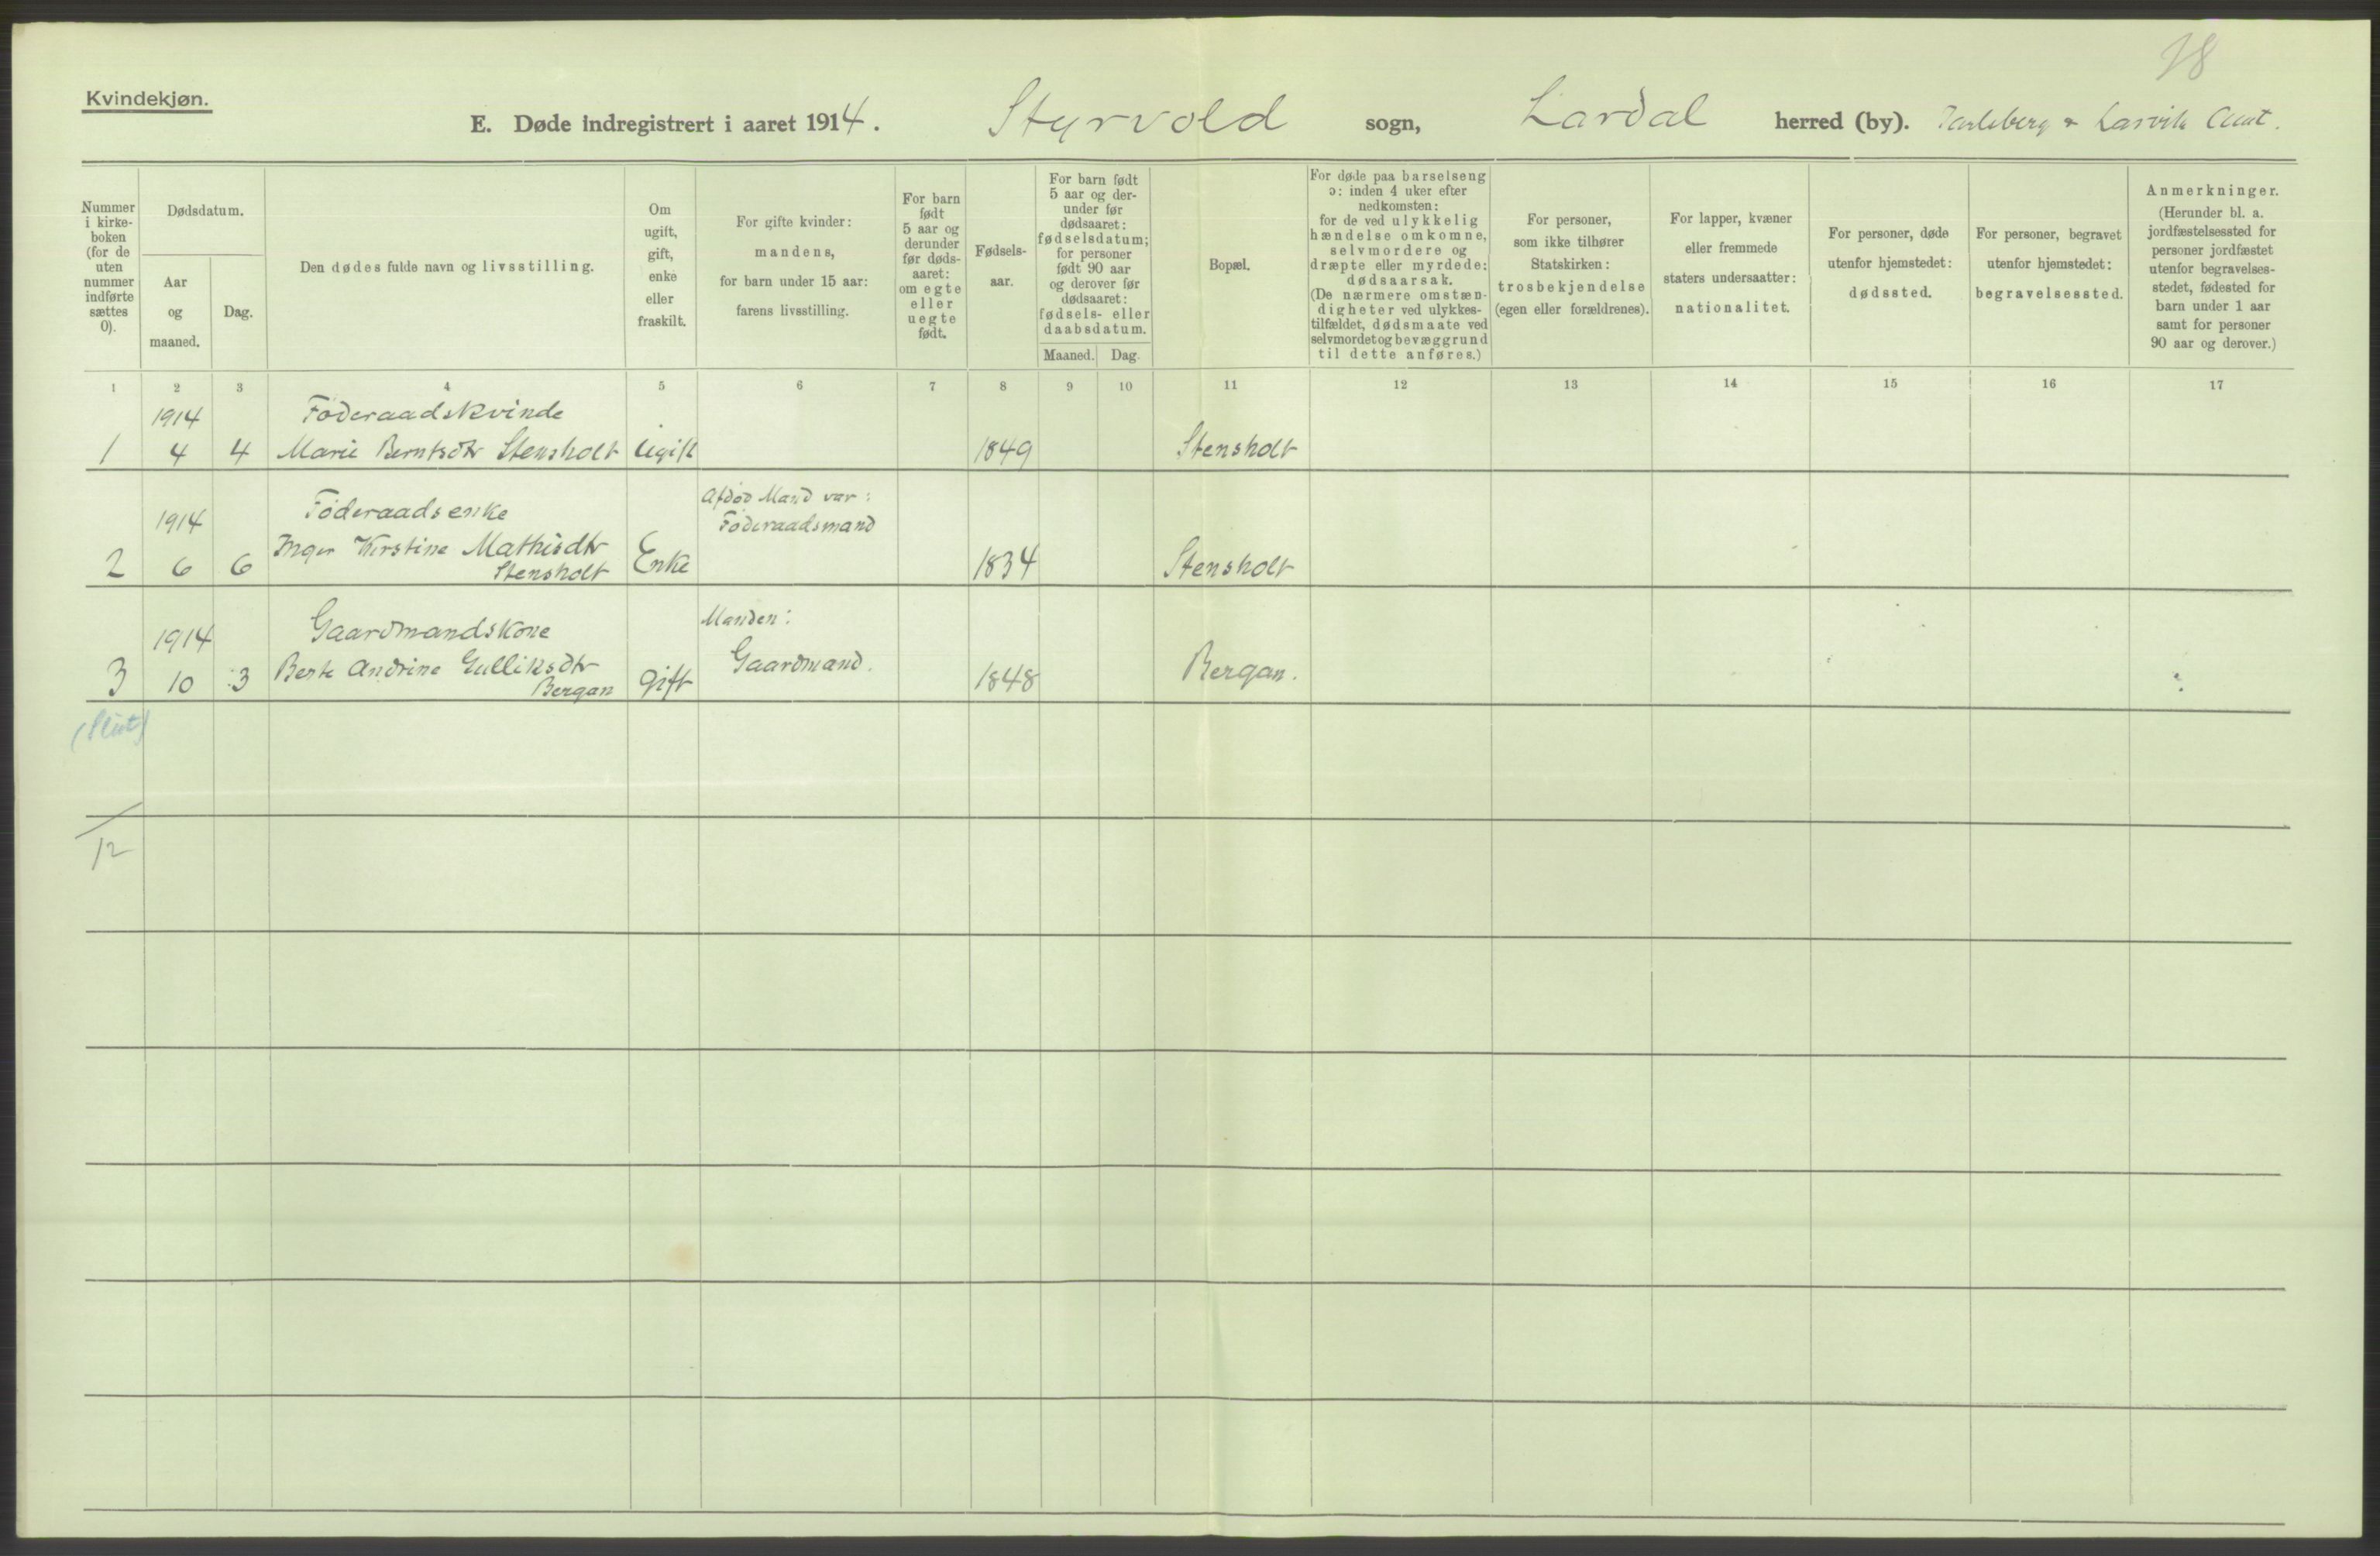 18
Kvindekjøn.
E. Døde indregistrert i aaret 1914. Styrvold sogn, Lardal herred (by). Jarlsberg & Larvik Amt.
Nummer i kirke- boken (for de uten nummer indførte sættes 0).
Dødsdatum.
Aar og maaned.
Dag.
Den dødes fulde navn og livsstilling.
Om ugift, gift, enke eller fraskilt.
For gifte kvinder: mandens, for barn under 15 aar: farens livsstilling.
For barn født 5 aar og derunder før døds- aaret: om egte eller uegte født.
Fødsels- aar.
For barn født 5 aar og der- under før dødsaaret: fødselsdatum; for personer født 90 aar og derover før dødsaaret: fødsels- eller daabsdatum.
Maaned. Dag.
Bopæl.
For døde paa barselseng ɔ: inden 4 uker efter nedkomsten: for de ved ulykkelig hændelse omkomne, selvmordere og dræpte eller myrdede: dødsaarsak. (De nærmere omstæn- digheter ved ulykkes- tilfældet, dødsmaate ved selvmordet og bevæggrund til dette anføres.)
For personer, som ikke tilhører Statskirken: trosbekjendelse (egen eller forældrenes).
For lapper, kvæner eller fremmede staters undersaatter: nationalitet.
For personer, døde utenfor hjemstedet: dødssted.
For personer, begravet utenfor hjemstedet: begravelsessted.
Anmerkninger. (Herunder bl. a. jordfæstelsessted for personer jordfæstet utenfor begravelses- stedet, fødested for barn under 1 aar samt for personer 90 aar og derover.)
1 2 3 4 5 6 7 8 9 10 11 12 13 14 15 16 17
1914 Føderaadskvinde
1 4 4 Marie Berntsdtr Stensholt Ugift 1849 Stensholt
Afdød Mand var:
1914 Føderaadsenke Føderaadsmand
Inger Kirstine Mathisdtr
2 6 6 Stensholt Enke 1834 Stensholt
Manden:
1914 Gaardmandskone
Berte Andrine Gulliksdtr Gaardmand.
3 10 3 Bergan gift 1848 Bergan.
(Slut)
12